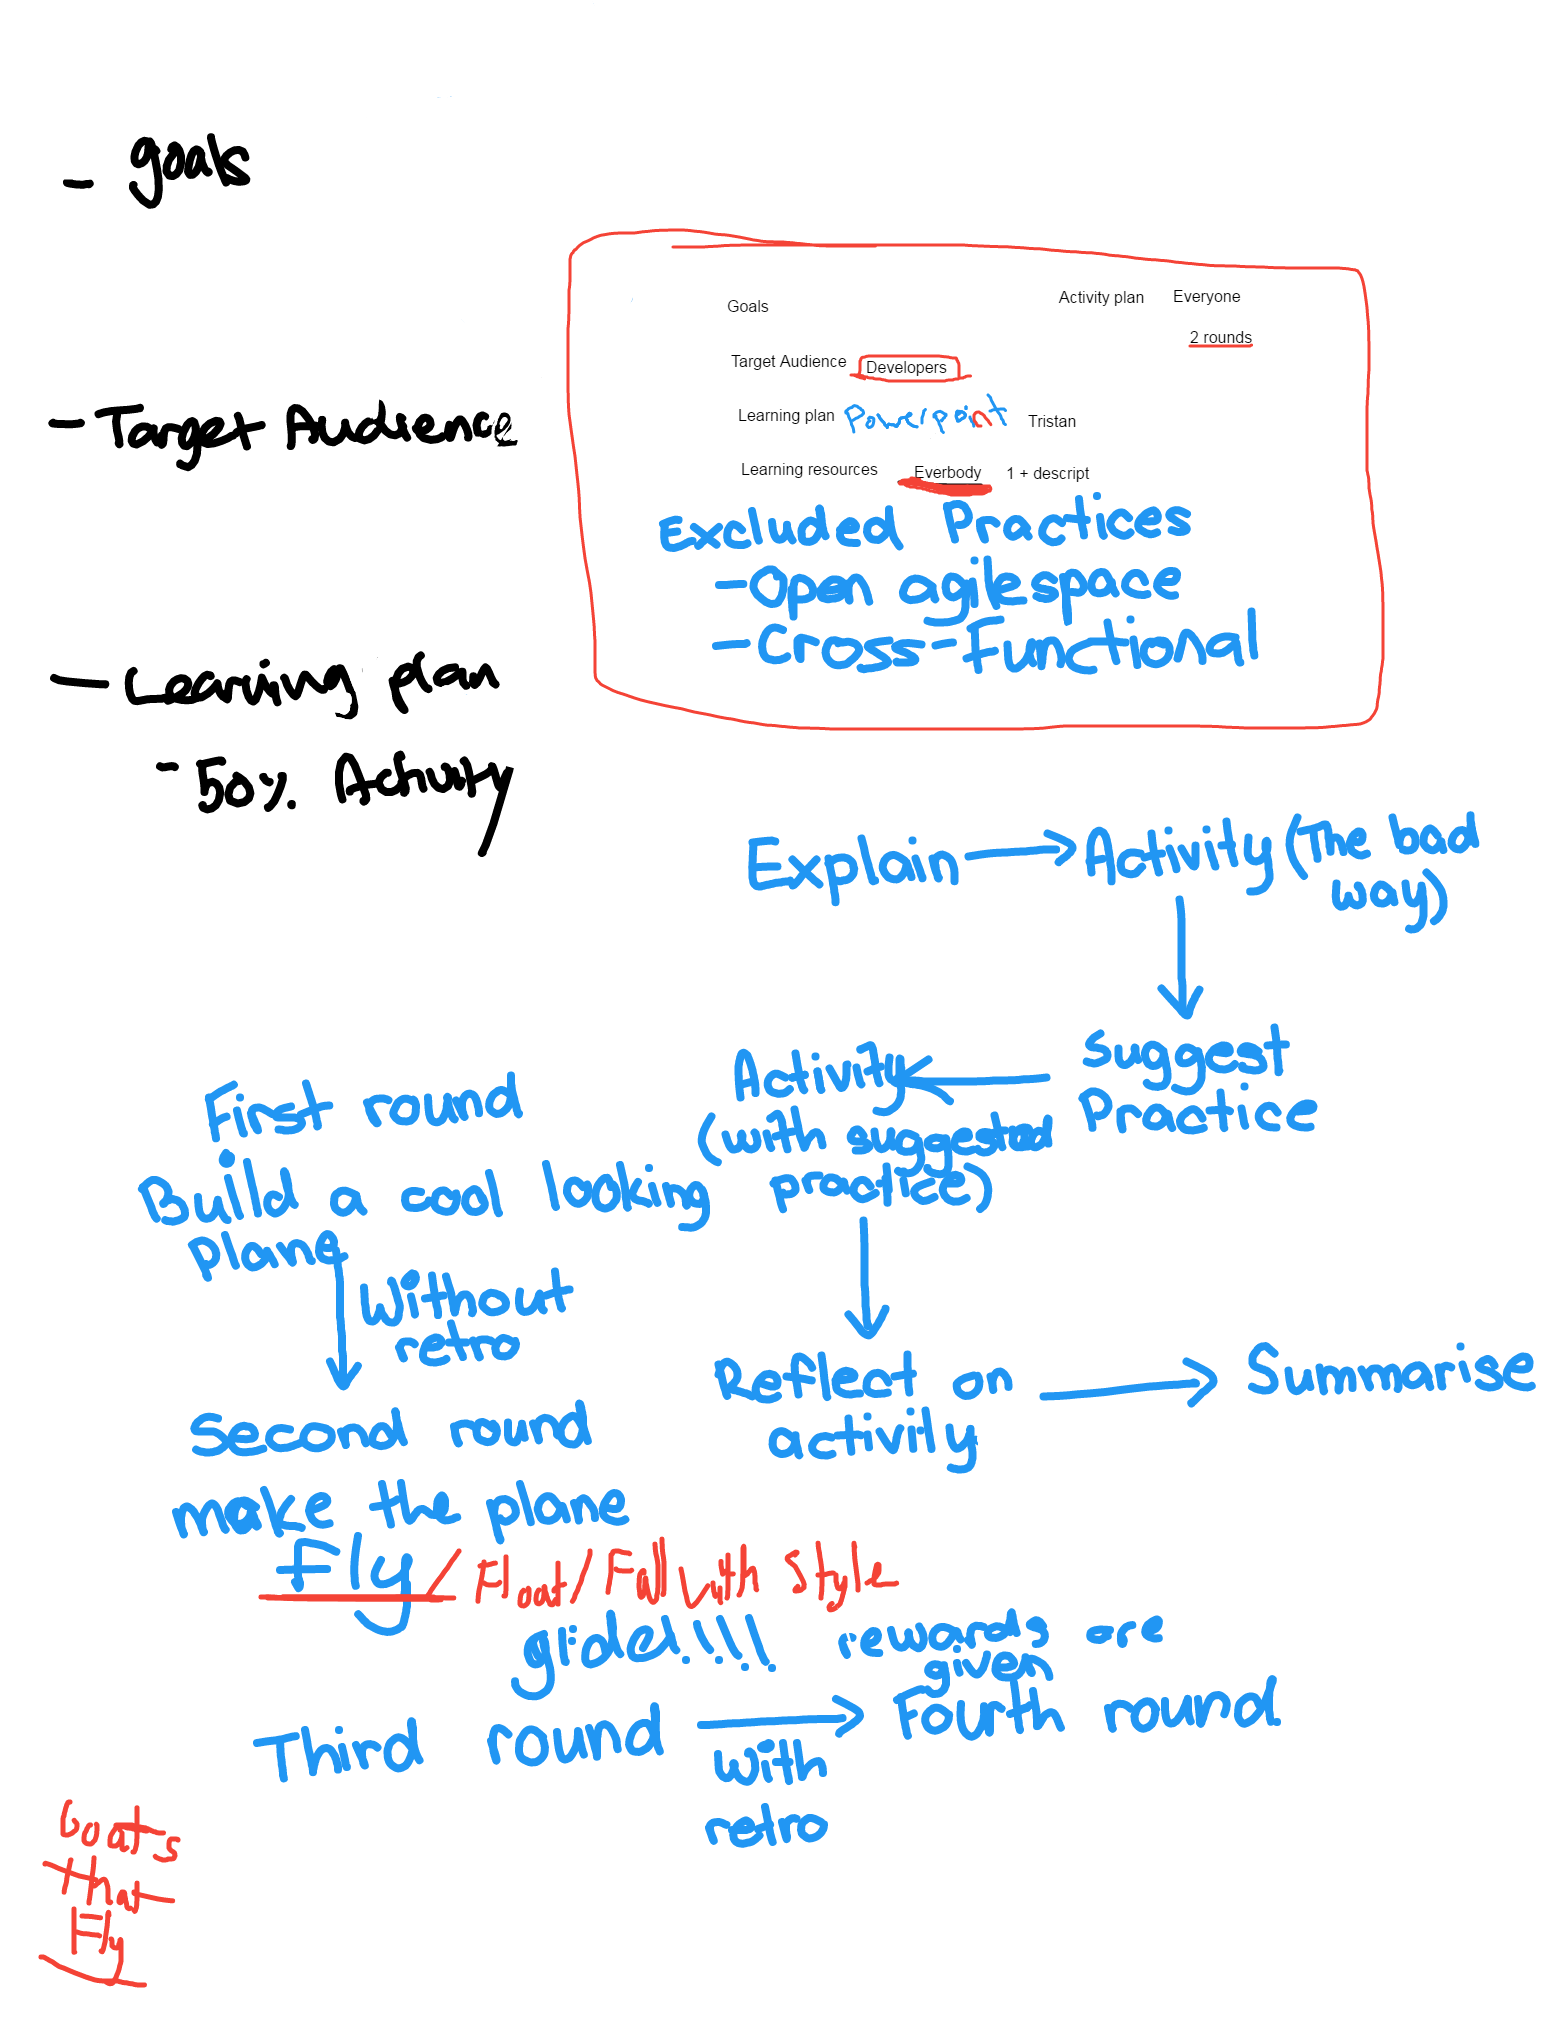 - goals
- Target Audience
- Learning plan
- 50% Activity
Goals
Activity plan Everyone
2 rounds
Target Audience Developers
Learning plan Powerpoint Tristan
Learning resources Everbody 1 + descript
Excluded Practices
- Open agile space
- Cross-Functional
Explain → Activity (The bad
way)
Suggest
Practice
Activity
(with suggested
practice)
Reflect on
activity
→ Summarise
First round
Build a cool looking
plane
Without
retro
Second round
make the plane
Fly / Float / Fall with Style
glide!!!!
rewards are
given
Third round → Fourth round
with
retro
that
Fly